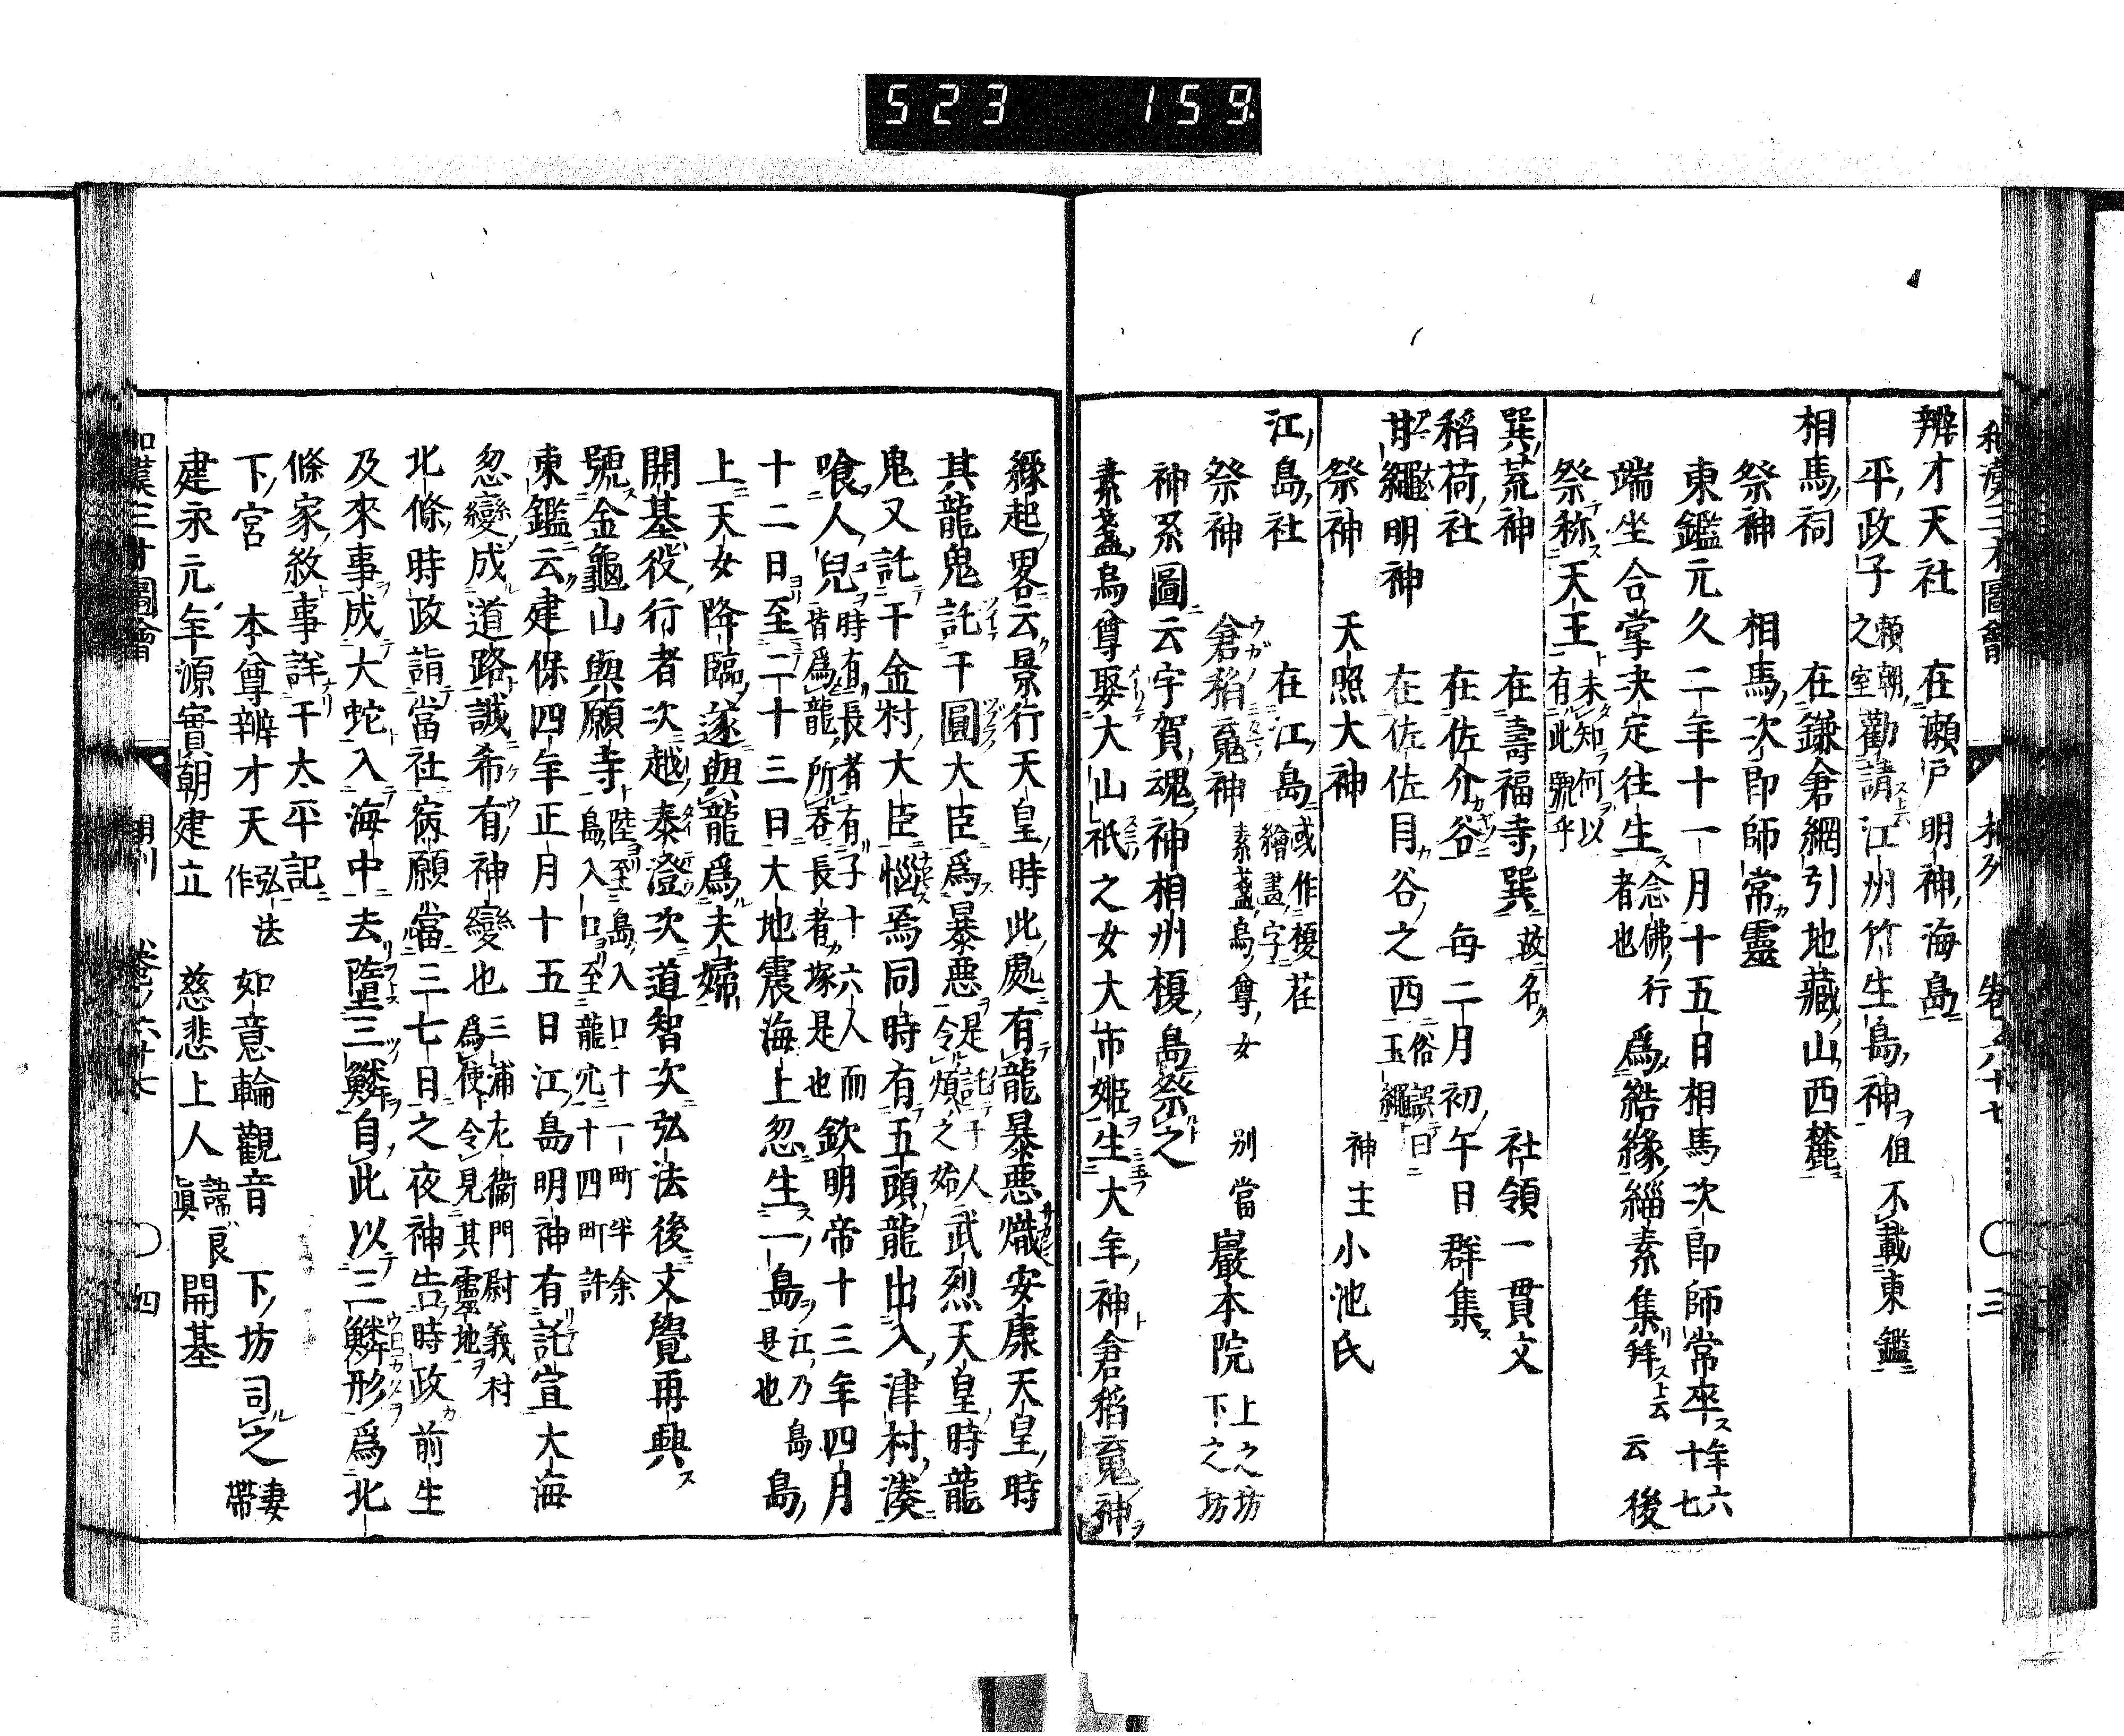 523 159
和漢三才圖會 相州 卷ノ六十七 ○ 三
辨才天社 在瀬戸明神海島
平政子頼朝之室勸請江州竹生島神但不載東鑑
相馬祠 在鎌倉網引地藏山西麓
祭神 相馬次郎師常靈
東鑑元久二年十一月十五日相馬次郎師常卒年六十七
端坐合掌決定往生念佛行者也爲結緣緇素集拜云云後
祭称天王未知何以有此號乎
巽荒神 在壽福寺巽故名 社領一貫文
稻荷社 在佐介谷 每二月初午日群集
甘繩明神 在佐佐目谷之西俗誤曰玉繩
祭神 天照大神 神主小池氏
江島社 在江島或作榎荏繪畫字
祭神 倉稻䰟神素盞烏尊女 別當 巖本院上之坊下之坊
神系圖云宇賀魂神相州榎島祭之
素盞烏尊娶大山祇之女大市姫生大年神倉稻䰟神
緣起畧云景行天皇時此處有龍暴悪熾安康天皇時
其龍鬼託干圓大臣爲暴悪是託干人令煩之始武烈天皇時龍
鬼又託干金村大臣惱焉同時有五頭龍出入津村湊
喰人兒時有長者有子十六人而皆爲龍所呑長者塚是也欽明帝十三年四月
十二日至二十三日大地震海上忽生一島江乃島是也島
上天女降臨遂與龍爲夫婦
開基役行者次越泰澄次道智次弘法後文覺再興
號金龜山與願寺陸至島入口十一町半余島入口至龍宂十四町許
東鑑云建保四年正月十五日江島明神有託宣大海
忽變成道路誠希有神變也三浦左衞門尉義村爲使令見其靈地
北條時政詣當社病願當三七日之夜神告時政前生
及來事成大蛇入海中去墮三鱗自此以三鱗形爲北
條家敘事詳干太平記
下宮 本尊辨才天弘法作 如意輪觀音 下坊司之妻帶
建永元年源實朝建立 慈悲上人諱良眞開基
和漢三才圖會 相州 卷ノ六十七 ○ 四